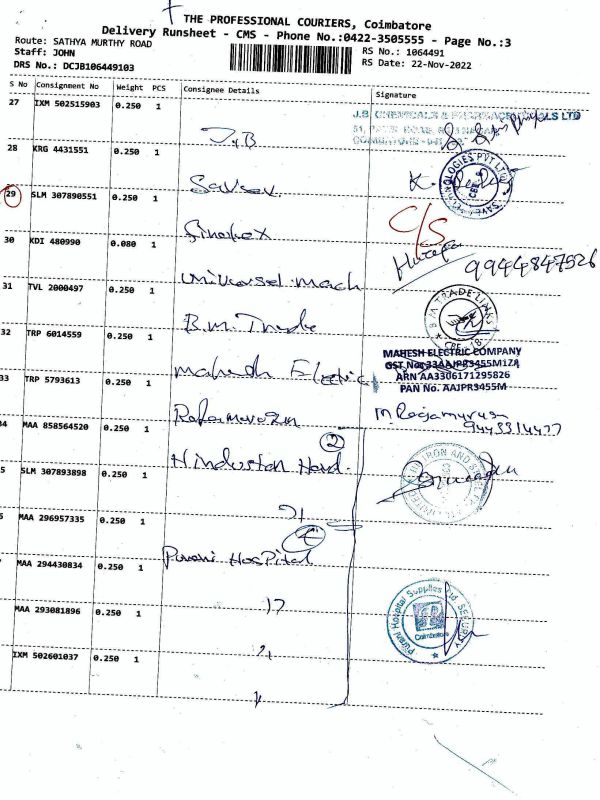 THE PROFESSIONAL COURIERS, Coimbatore
Delivery Runsheet - CMS - Phone No.:0422-3505555 - Page No.:3
Route: SATHYA MURTHY ROAD
RS No.: 1064491
Staff: JOHN
RS Date: 22-Nov-2022
DRS No.: DCJB106449103
S No Consignment No Weight PCS Consignee Details Signature
27 IXM 502515903 0.250 1 J.B
J.B CHEMICALS & PHARMACEUTICALS LTD
28 KRG 4431551 0.250 1
29 SLM 307890551 0.250 1
C/S
30 KDI 480990 0.080 1 Universal mach
9944847526
31 TVL 2000497 0.250 1 B.M. Trade
B M TRADE-LINKS
CBE - 18
32 TRP 6014559 0.250 1 Mahesh Electric
MAHESH ELECTRIC COMPANY
GST No: 33AAJPR3455M1ZA
ARN AA3306171295826
PAN No. AAJPR3455M
33 TRP 5793613 0.250 1
M. Raajamurusu
9443314477
34 MAA 858564520 0.250 1 Hindustan Hard. 2
5 SLM 307893898 0.250 1
IRON AND STEEL
MAA 296957335 0.250 1 Purani Hospital
MAA 294430834 0.250 1
MAA 293081896 0.250 1
Purani Hospital Supplies Pvt Ltd. SECURITY
Coimbatore
IXM 502601037 0.250 1